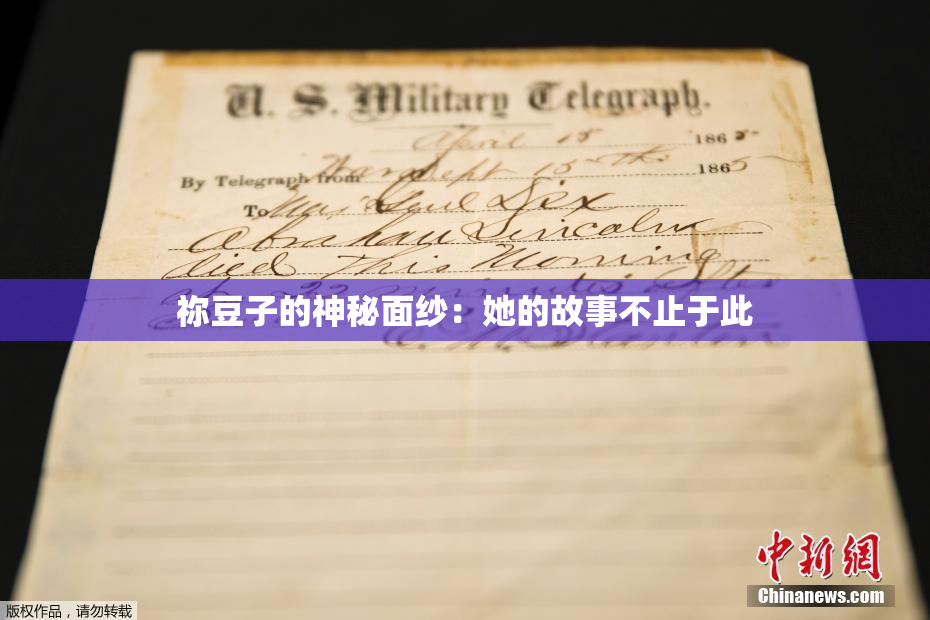 U. S. Military Telegraph.
April 15 1865
By Telegraph from War Dept 15th 1865
To Maj Genl Dix
Abraham Lincoln
died This Morning
at 22 minutes after
祢豆子的神秘面纱：她的故事不止于此
E. M. Stanton
中新網
Chinanews.com
版权作品，请勿转载